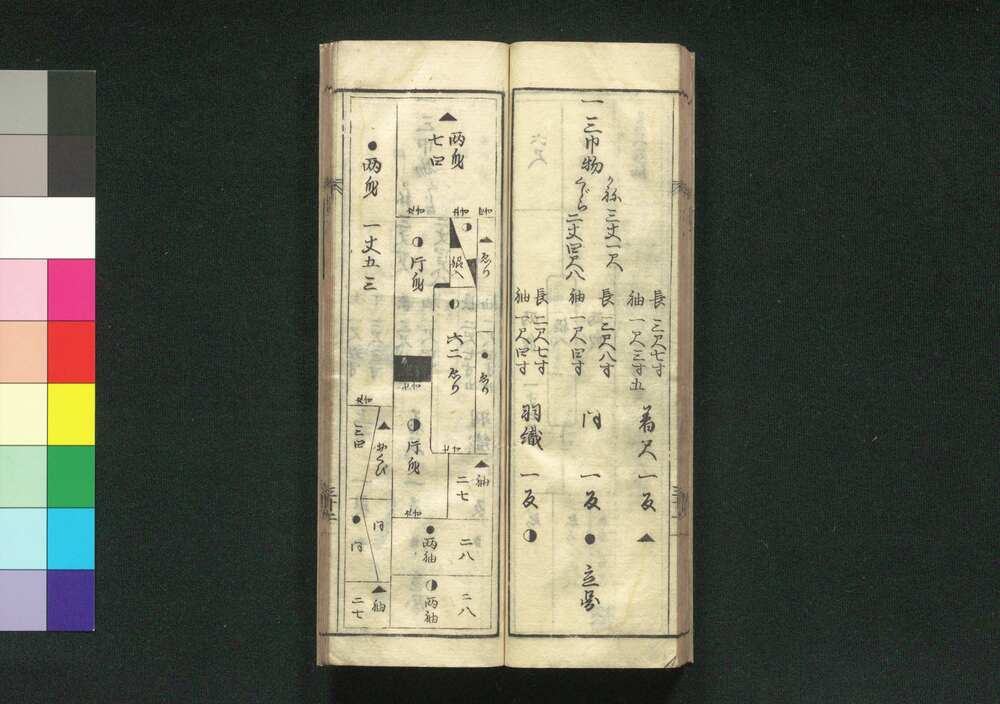 一三巾物
かね 三丈一尺
くじら 二丈四尺八
長 三尺七寸
袖 一尺三寸五
着尺 一反 ▲
長 三尺八寸
袖 一尺四寸
同 一反 ●
長 二尺七寸
袖 一尺四寸
羽織 一反 ◑
▲ 両身
七四
ゑり
片身
六二 ゑり
● ゑり
片身
▲ 袖
二七
● 両袖
二八
◑ 両袖
二八
● 両身 一丈五三
▲ おくび
三四
同
● 同
▲ 袖
二七